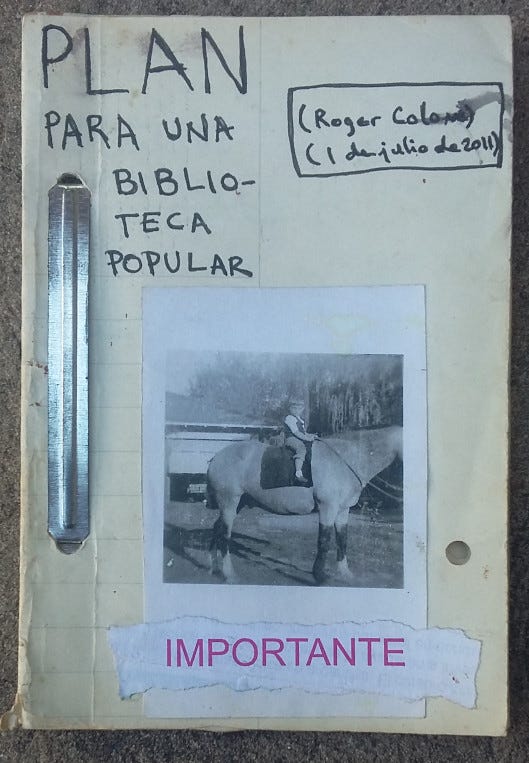 PLAN
PARA UNA
BIBLIO-
TECA
POPULAR
(Roger Colom)
(1 de julio de 2011)
IMPORTANTE